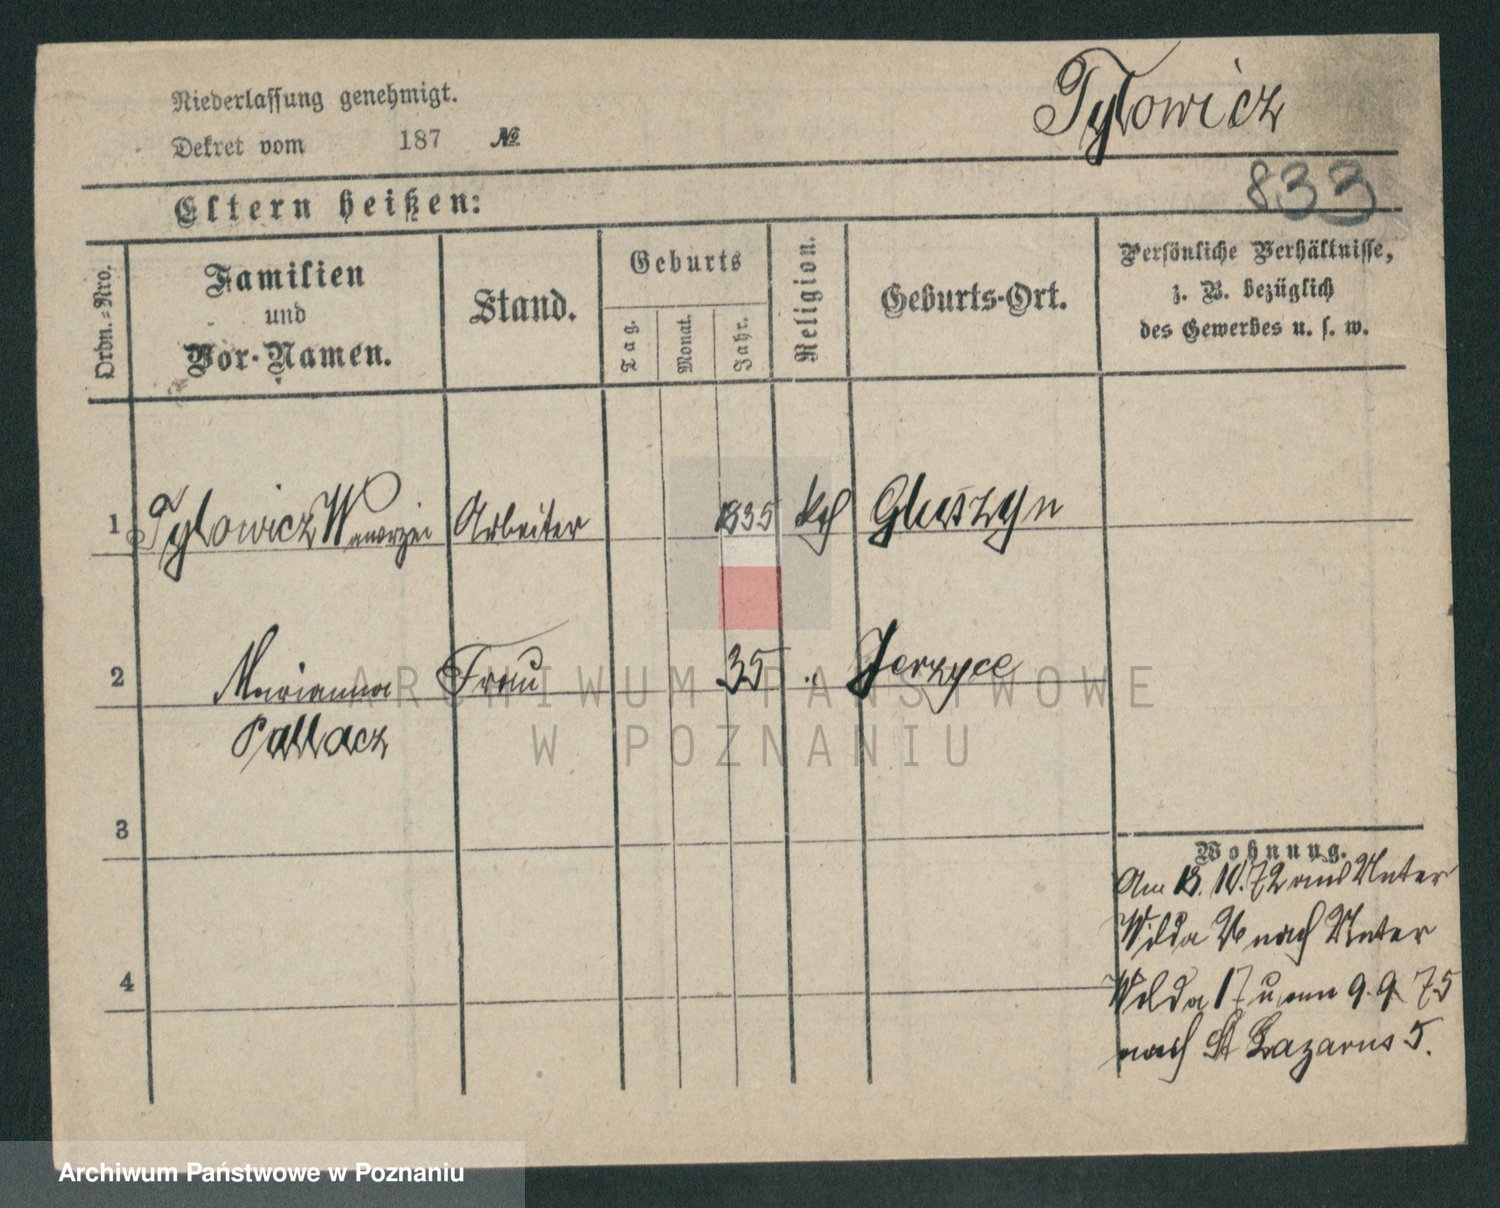 Niederlassung genehmigt.
Dekret vom 187 №
Tylowicz
833
Eltern heißen:
Ordn.-Nro.
Familien
und
Vor-Namen.
Stand.
Geburts
Tag.
Monat.
Jahr.
Religion.
Geburts-Ort.
Persönliche Verhältnisse,
z. B. bezüglich
des Gewerbes u. s. w.
1 Tylowicz Wawrzyn Arbeiter 1835 kth Gluszyn
2 Marianna Frau 35 " Jerzyce
Pallacz
3
4
Wohnung.
Am 18. 10. 72 aus Unter
Wilda nach Unter
Wilda 17 u. am 9. 9. 75
nach St Lazarus 5.
ARCHIWUM PAŃSTWOWE
W POZNANIU
Archiwum Państwowe w Poznaniu